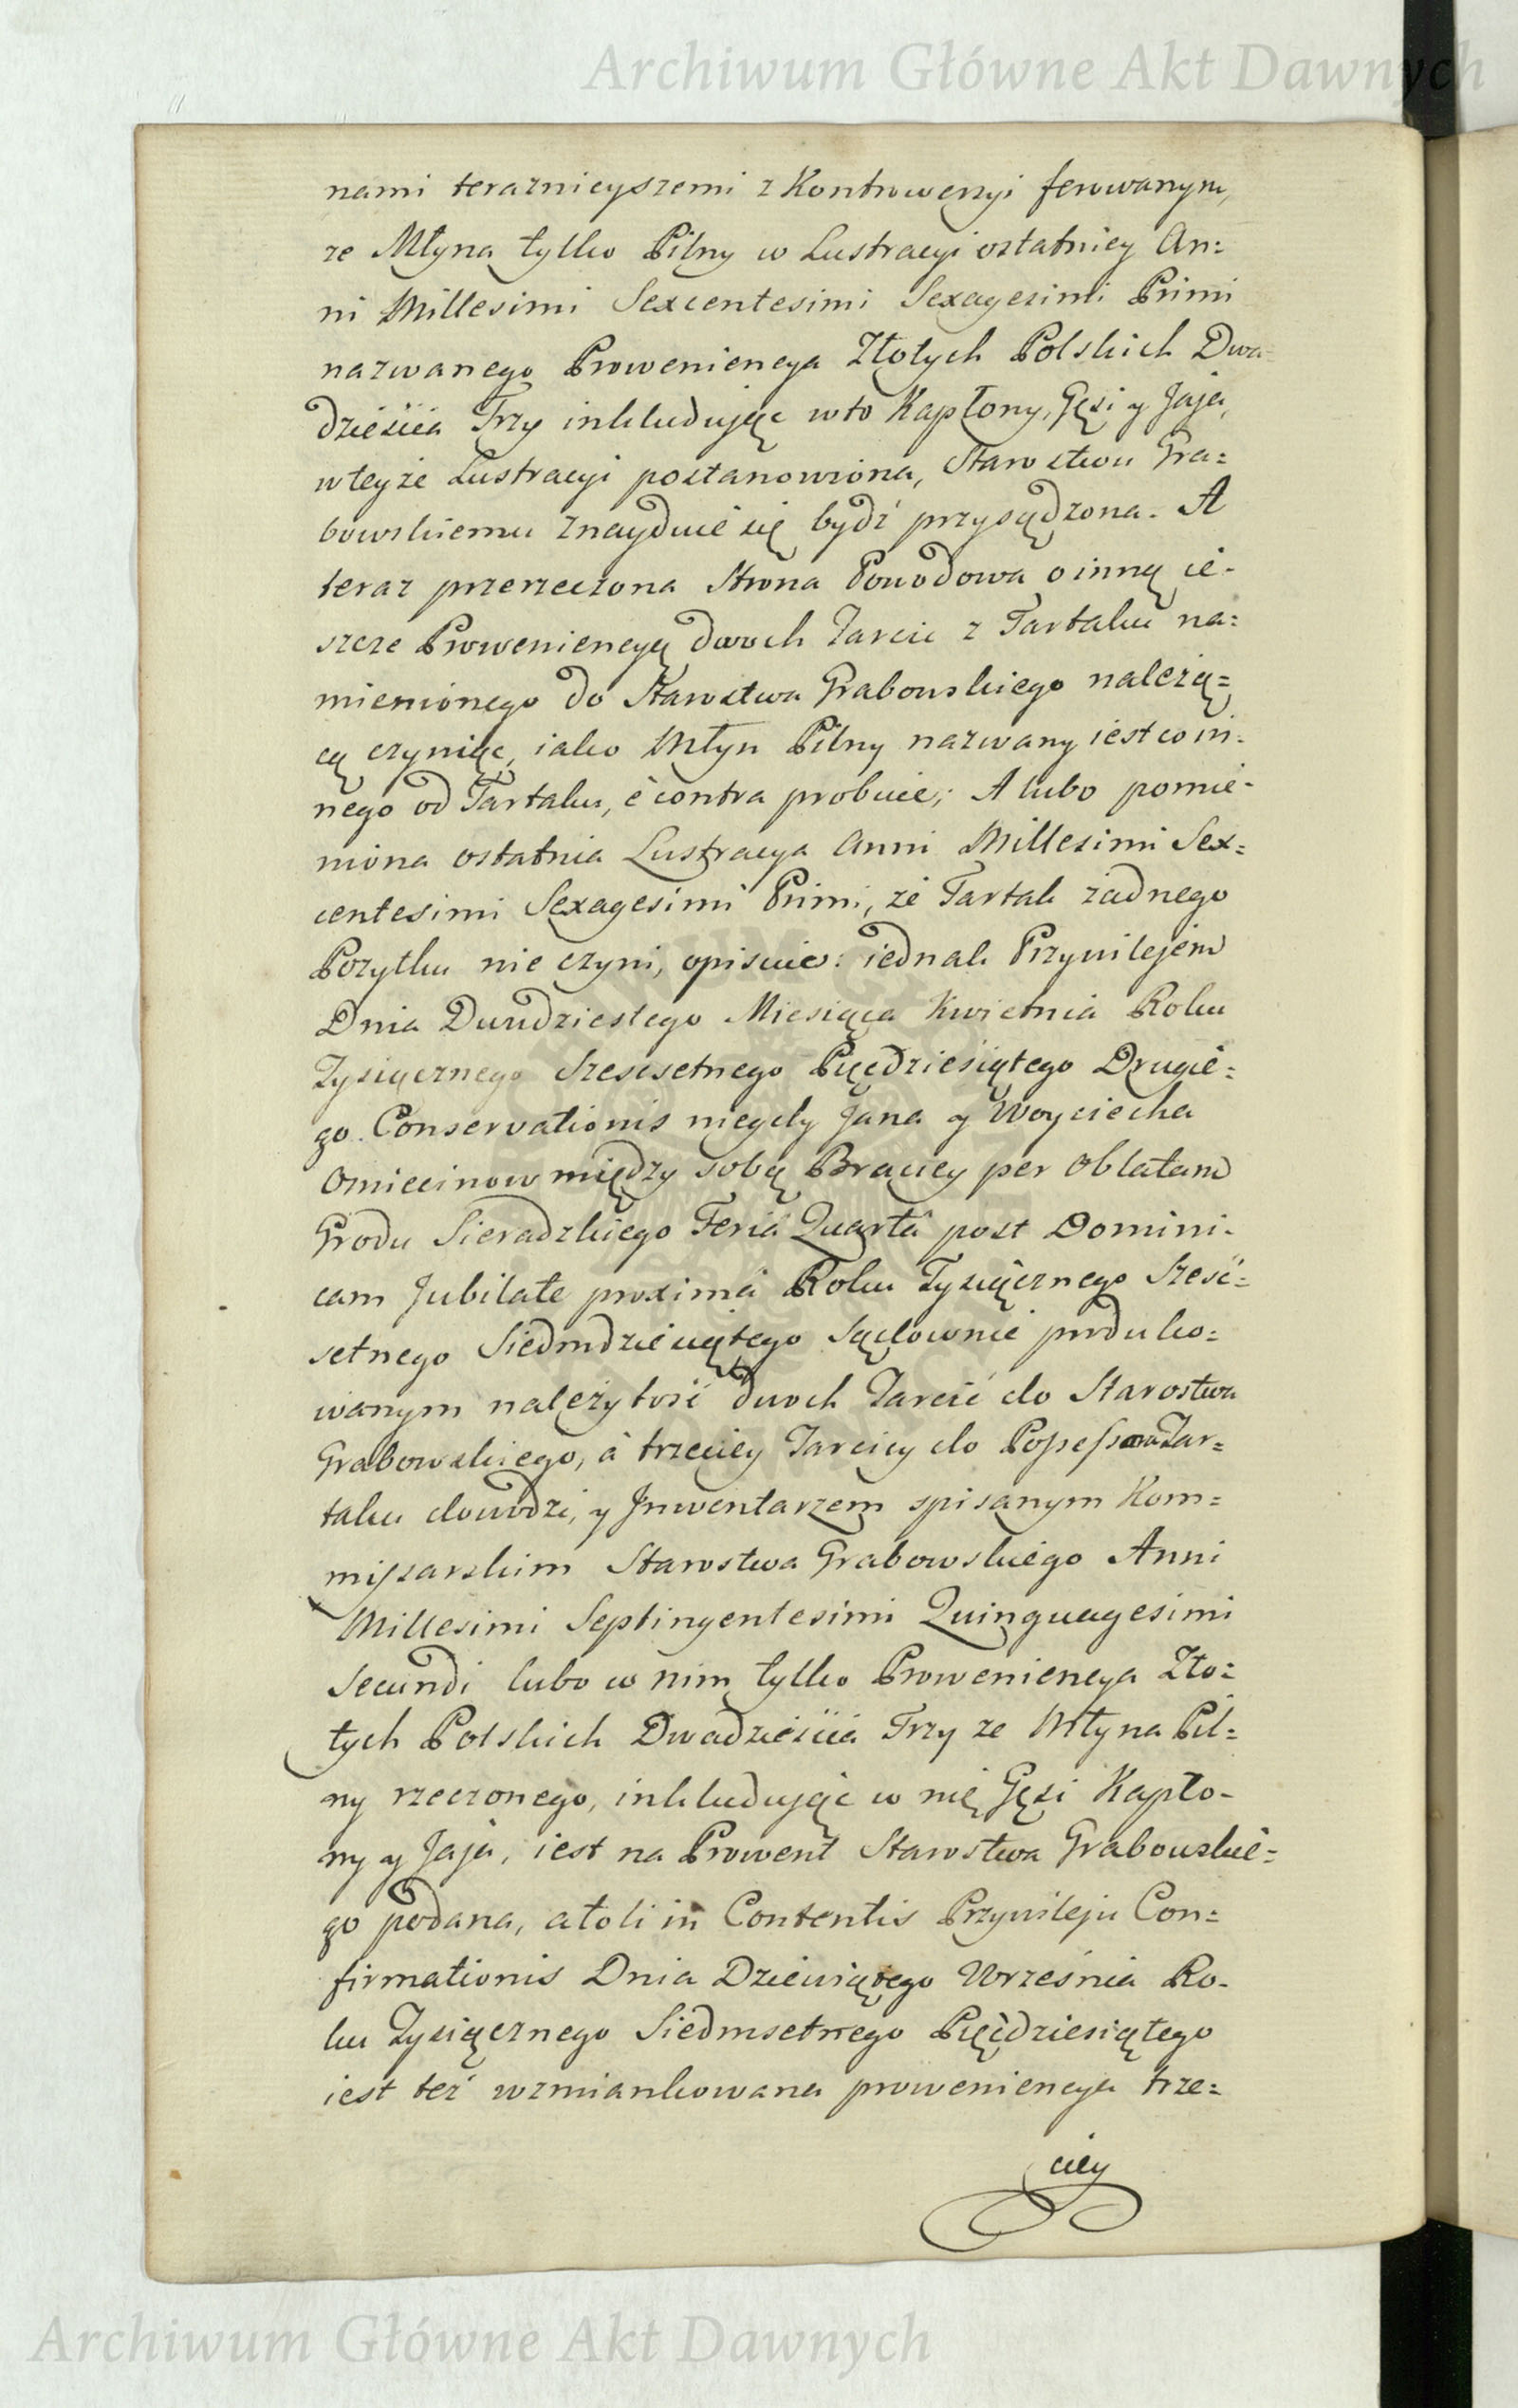 Archiwum Główne Akt Dawnych
nami teraznieyszemi z Kontrowersyi ferowanym,
ze Młyna tylko Pilny w Lustracyi ostatniey An=
ni Millesimi Sexcentesimi Sexagesimi Primi
nazwanego Prowenieneya Złotych Polskich Dwa=
dzieścia Trzy inkludując w to Kapłony, Gęsi y Jaja,
w teyże Lustracyi postanowiona, Starostwu Gra=
bowskiemu znayduie się bydź przysądzona. A
teraz przerzeczona Strona Powodowa o inną ie-
szcze Prowenieneyą dwoch Tarcic z Tartaku na=
mienionego do Starostwa Grabowskiego należą=
cą czyniąc, iako Młyn Pilny nazwany iest co in-
nego od Tartaku, è contra probuie; A lubo pomie-
niona ostatnia Lustracya Anni Millesimi Sex=
centesimi Sexagesimi Primi, że Tartak żadnego
Pozytku nie czyni, opisuie: iednak Przywilejem
Dnia Dwudziestego Miesiąca Kwietnia Roku
Tysiącznego Szescsetnego Pięćdziesiątego Drugie=
go Conservationis niegdy Jana y Woyciecha
Omiecinow między sobą Braciey per Oblatam
Grodu Sieradzkiego Feria Quarta post Domini-
cam Jubilate proxima Roku Tysiącznego Sześć=
setnego Siedmdziesiątego sądownie produko=
wanym należytość dwoch Tarcic do Starostwa
Grabowskiego, à trzeciey Tarcicy do Possessora Tar=
taku dowodzi, y Jnwentarzem spisanym Kom=
missarskim Starostwa Grabowskiego Anni
Millesimi Septingentesimi Quinquagesimi
Secundi lubo w nim tylko Prowenieneya Zło=
tych Polskich Dwadzieścia Trzy ze Młyna Pil=
ny rzeczonego, inkludując w nię Gęsi Kapło-
ny y Jaja, iest na Prowent Starostwa Grabowskie=
go podana, atoli in Contentis Przywileju Con=
firmationis Dnia Dziewiątego Września Ro-
ku Tysiącznego Siedmsetnego Pięćdziesiątego
iest też wzmiankowana prowenieneya trze=
ciey
Archiwum Główne Akt Dawnych